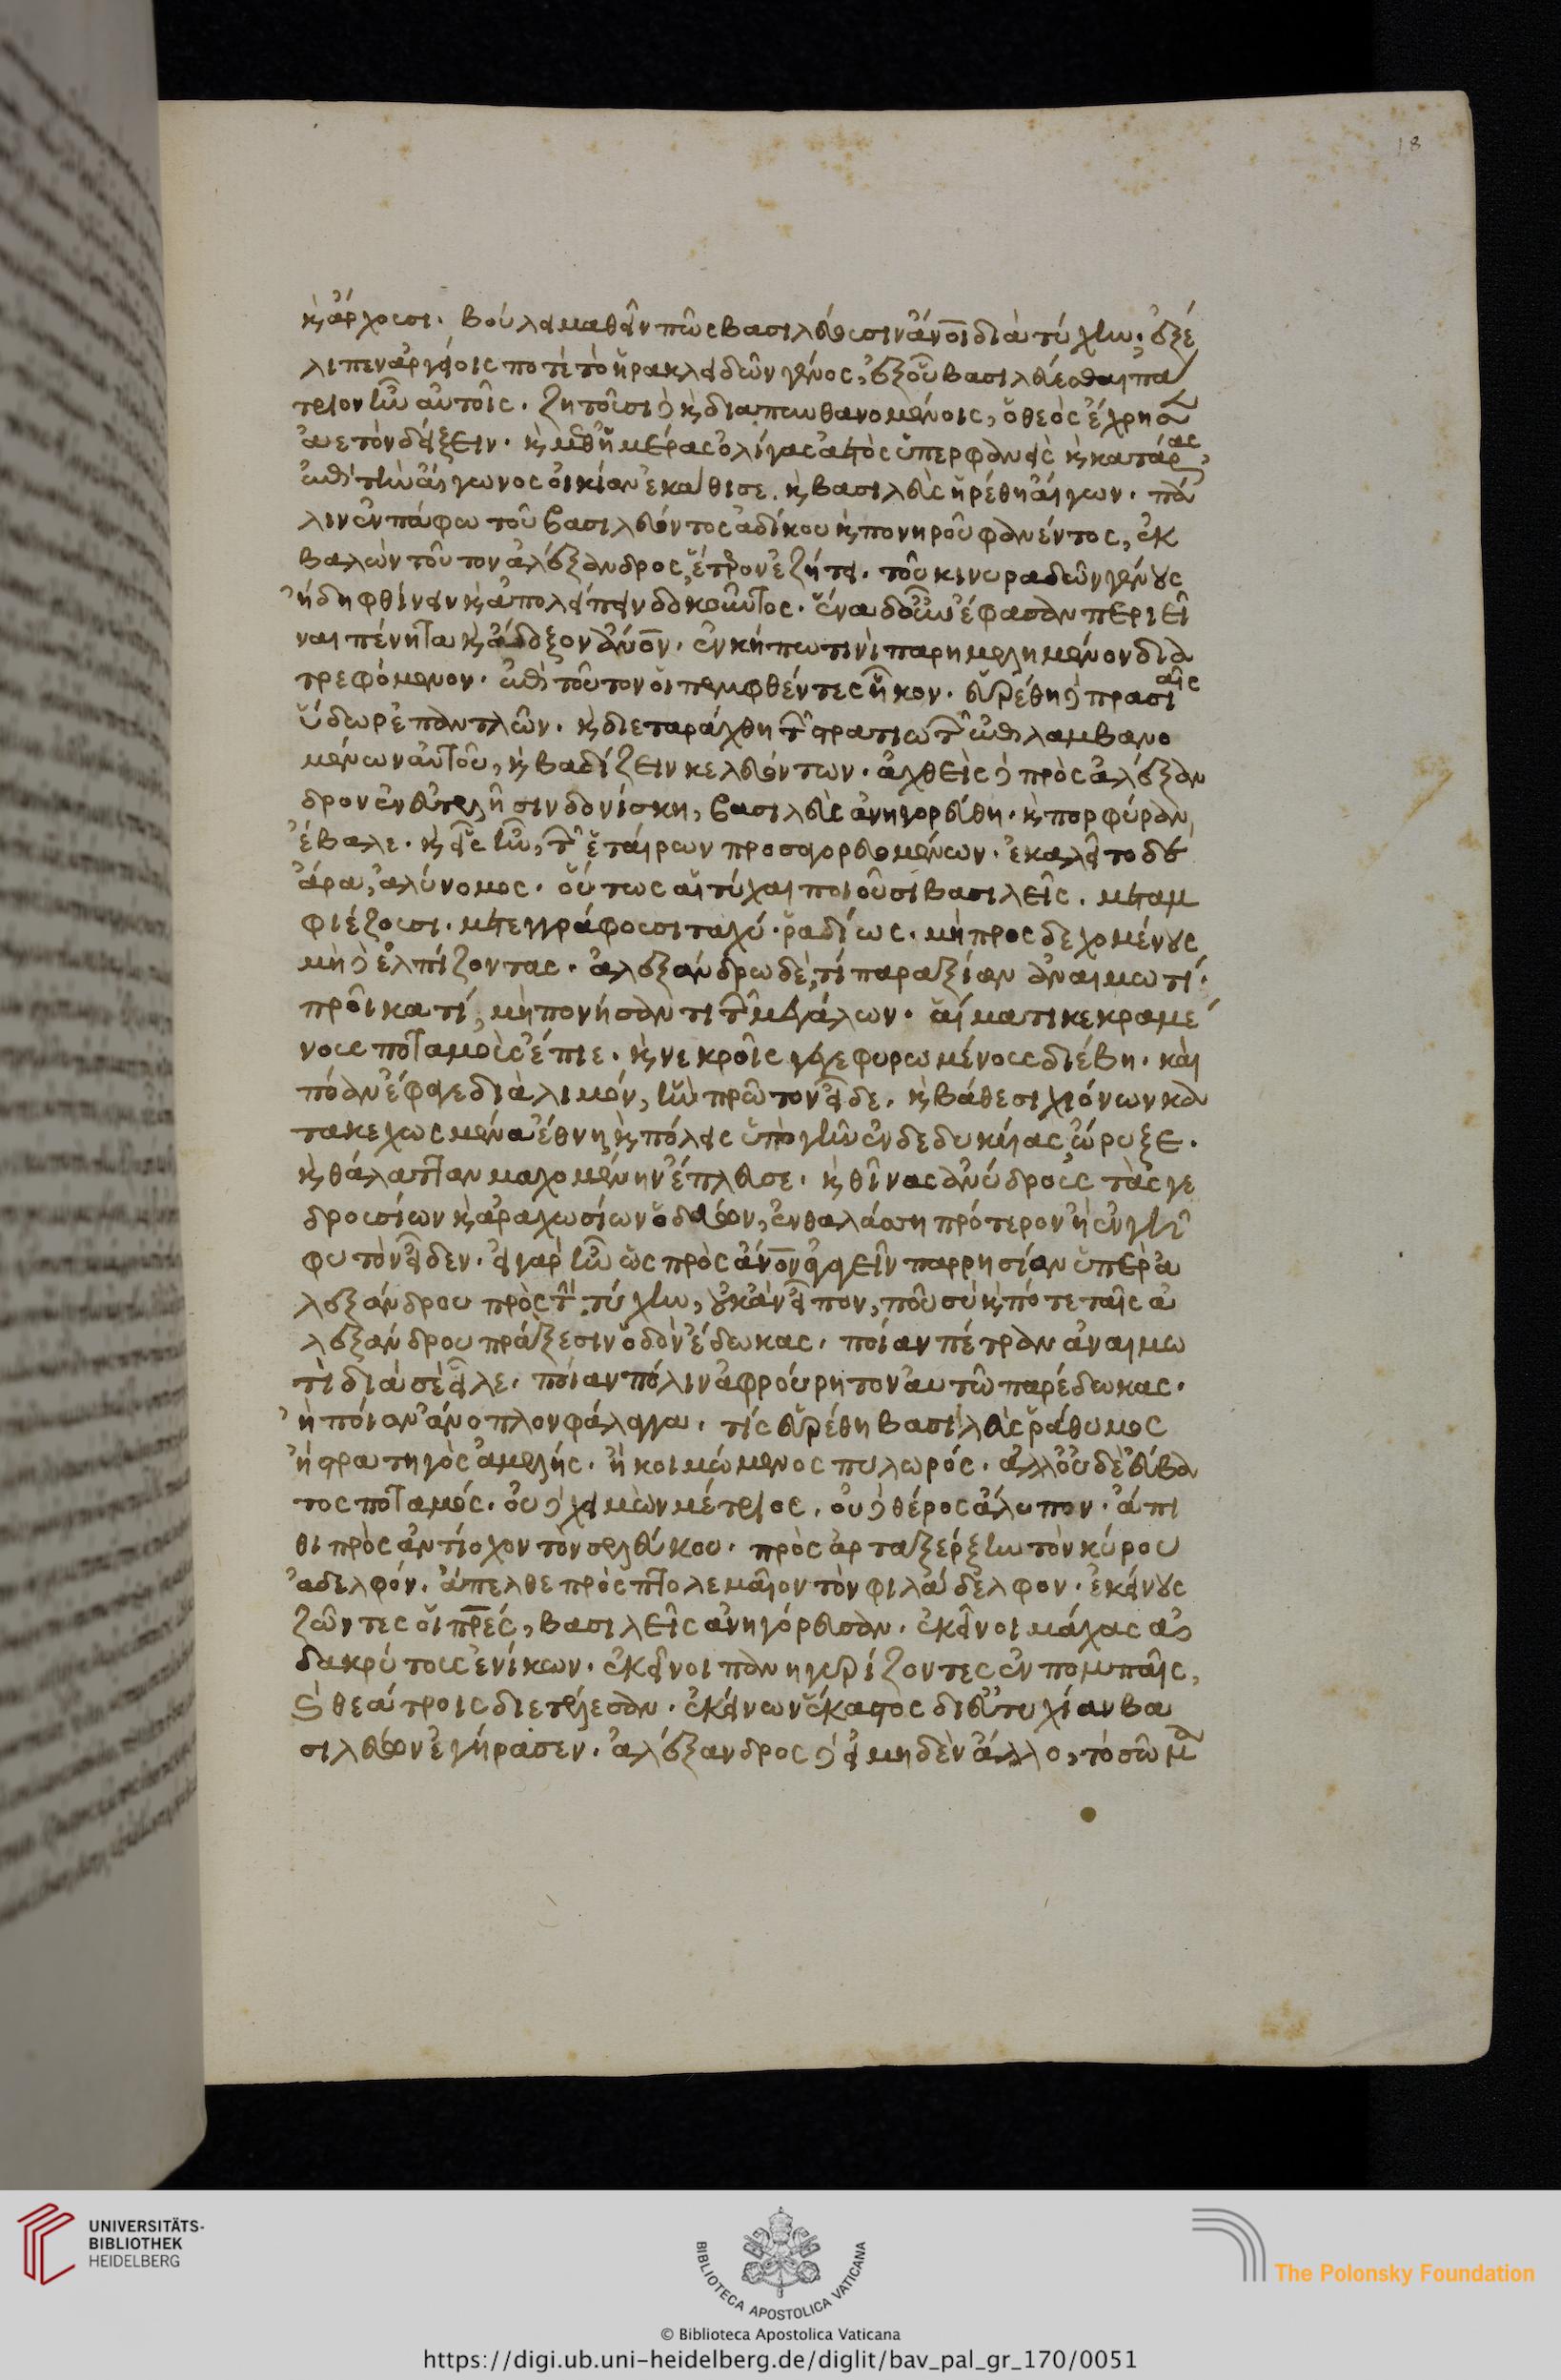 18
καὶ ἄρχουσι. βούλει μαθεῖν πῶς βασιλεύουσιν ἄνοι διὰ τύχην; ἐξέ
λιπεν ἀργείοις ποτὲ τὸ ἡρακλειδῶν γένος, ἐξ οὗ βασιλεύεσθαι πά
τριον ἦν αὐτοῖς. ζητοῦσι δὲ καὶ διαπυνθανομένοις, ὁ θεὸς ἔχρησεν
ἀετὸν δείξειν. καὶ μεθ' ἡμέρας ὀλίγας ἀετὸς ὑπερφανεὶς καὶ κατάρας
ἐπὶ τὴν αἴγωνος οἰκίαν ἐκάθισε. καὶ βασιλεὺς ἡρέθη αἴγων. πά
λιν ἐν πάφω τοῦ βασιλεύοντος ἀδίκου καὶ πονηροῦ φανέντος, ἐκ
βαλὼν τοῦτον ἀλέξανδρος, ἕτερον ἐζήτει. τοῦ κινυραδῶν γένους
ἤδη φθίνειν καὶ ἀπολείπειν δοκοῦντος. ἕνα δ' οὖν ἔφασαν περιεῖ
ναι πένητα καὶ ἄδοξον ἄνον. ἐν κήπω τινὶ παρημελημένον δια
τρεφόμενον. ἐπὶ τοῦτον οἱ πεμφθέντες ἧκον. εὑρέθη δὲ πρασιαῖς
ὕδωρ ἐπαντλῶν. καὶ διεταράχθη τῶν στρατιωτῶν ἐπιλαμβανο
μένων αὐτοῦ, καὶ βαδίζειν κελευόντων. ἀχθεὶς δὲ πρὸς ἀλέξαν
δρον ἐν εὐτελῆ σινδονίσκη, βασιλεὺς ἀνηγορεύθη. καὶ πορφύραν
ἔβαλε. καὶ εἷς ἦν, τῶν ἑταίρων προσαγορευομένων. ἐκαλεῖτο δὲ
ἄρα, ἀλύνομος. οὕτως αἱ τύχαι ποιοῦσι βασιλεῖς. μεταμ
φιέζουσι. μετεγγράφουσι ταχύ. ῥαδίως. μὴ προσδεχομένους
μὴ δὲ ἐλπίζοντας. ἀλεξάνδρω δὲ, τί παραξίαν ἀναιμωτί.
προῖκα τί, μὴ πονήσαντι τῶν μεγάλων. αἵματι κεκραμέ
νους ποταμοὺς ἔπιε. καὶ νεκροῖς γεγεφυρωμένους διέβη. καὶ
πόαν ἔφαγε διὰ λιμόν, ἣν πρῶτον εἶδε. καὶ βάθεσι χιόνων κα
τακεχωσμένα ἔθνη καὶ πόλεις ὑπὸ γῆν ἐνδεδυκυίας ὤρυξε.
καὶ θάλατταν μαχομένην ἔπλευσε. καὶ θῖνας ἀνύδρους τὰς γε
δρουσίων καὶ ἀραχωσίων ὁδεύων, ἐν θαλάσση πρότερον ἢ ἐν γῆ
φυτὸν εἶδεν. εἰ γὰρ ἦν ὡς πρὸς ἄνον ἀγαγεῖν παρρησίαν ὑπὲρ ἀ
λεξάνδρου πρὸς τὴν τύχην, οὐκ ἂν εἶπον, ποῦ σὺ καὶ πότε ταῖς ἀ
λεξάνδρου πράξεσιν ὁδὸν ἔδωκας. ποίαν πέτραν ἀναιμω
τὶ διά σὲ εἷλε. ποίαν πόλιν ἀφρούρητον αυτῶ παρέδωκας.
ἢ ποίαν ἄνοπλον φάλαγγα. τίς εὑρέθη βασιλεὺς ῥάθυμος
ἢ στρατηγὸς ἀμελής. ἢ κοιμώμενος πυλωρός. ἀλλ' οὐδὲ εὔβα
τος ποταμός. οὐ δὲ χειμὼν μέτριος. οὐ δὲ θέρος ἄλυπον. ἄπι
θι πρὸς ἀντίοχον τὸν σελεύκου. πρὸς ἀρταξέρξην τὸν κύρου
ἀδελφόν. ἄπελθε πρὸς πτολεμαῖον τὸν φιλάδελφον. ἐκείνους
ζῶντες οἱ πρες, βασιλεῖς ἀνηγόρευσαν. ἐκεῖνοι μάχας ἀ
δακρύτους ἐνίκων. ἐκεῖνοι πανηγυρίζοντες ἐν πομπαῖς,
καὶ θεάτροις διετέλεσαν. ἐκείνων ἕκαστος δι' εὐτυχίαν βα
σιλεύων ἐγήρασεν. ἀλέξανδρος δὲ εἰ μηδὲν ἄλλο, τὸ σῶμα
UNIVERSITÄTS-
BIBLIOTHEK
HEIDELBERG
BIBLIOTECA APOSTOLICA VATICANA
The Polonsky Foundation
© Biblioteca Apostolica Vaticana
https://digi.ub.uni-heidelberg.de/diglit/bav_pal_gr_170/0051